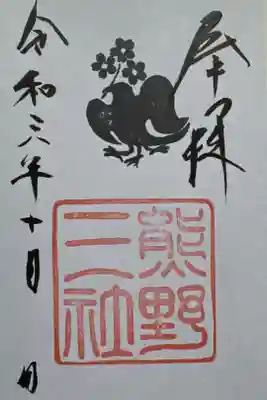 奉拝
熊野
二社
令和三年十月 日